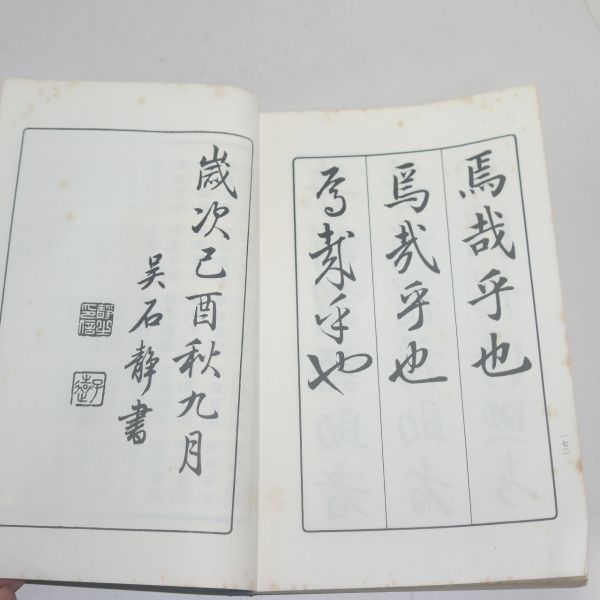 焉哉乎也
焉哉乎也
焉哉乎也
一七二
歲次己酉秋九月
吴石靜書